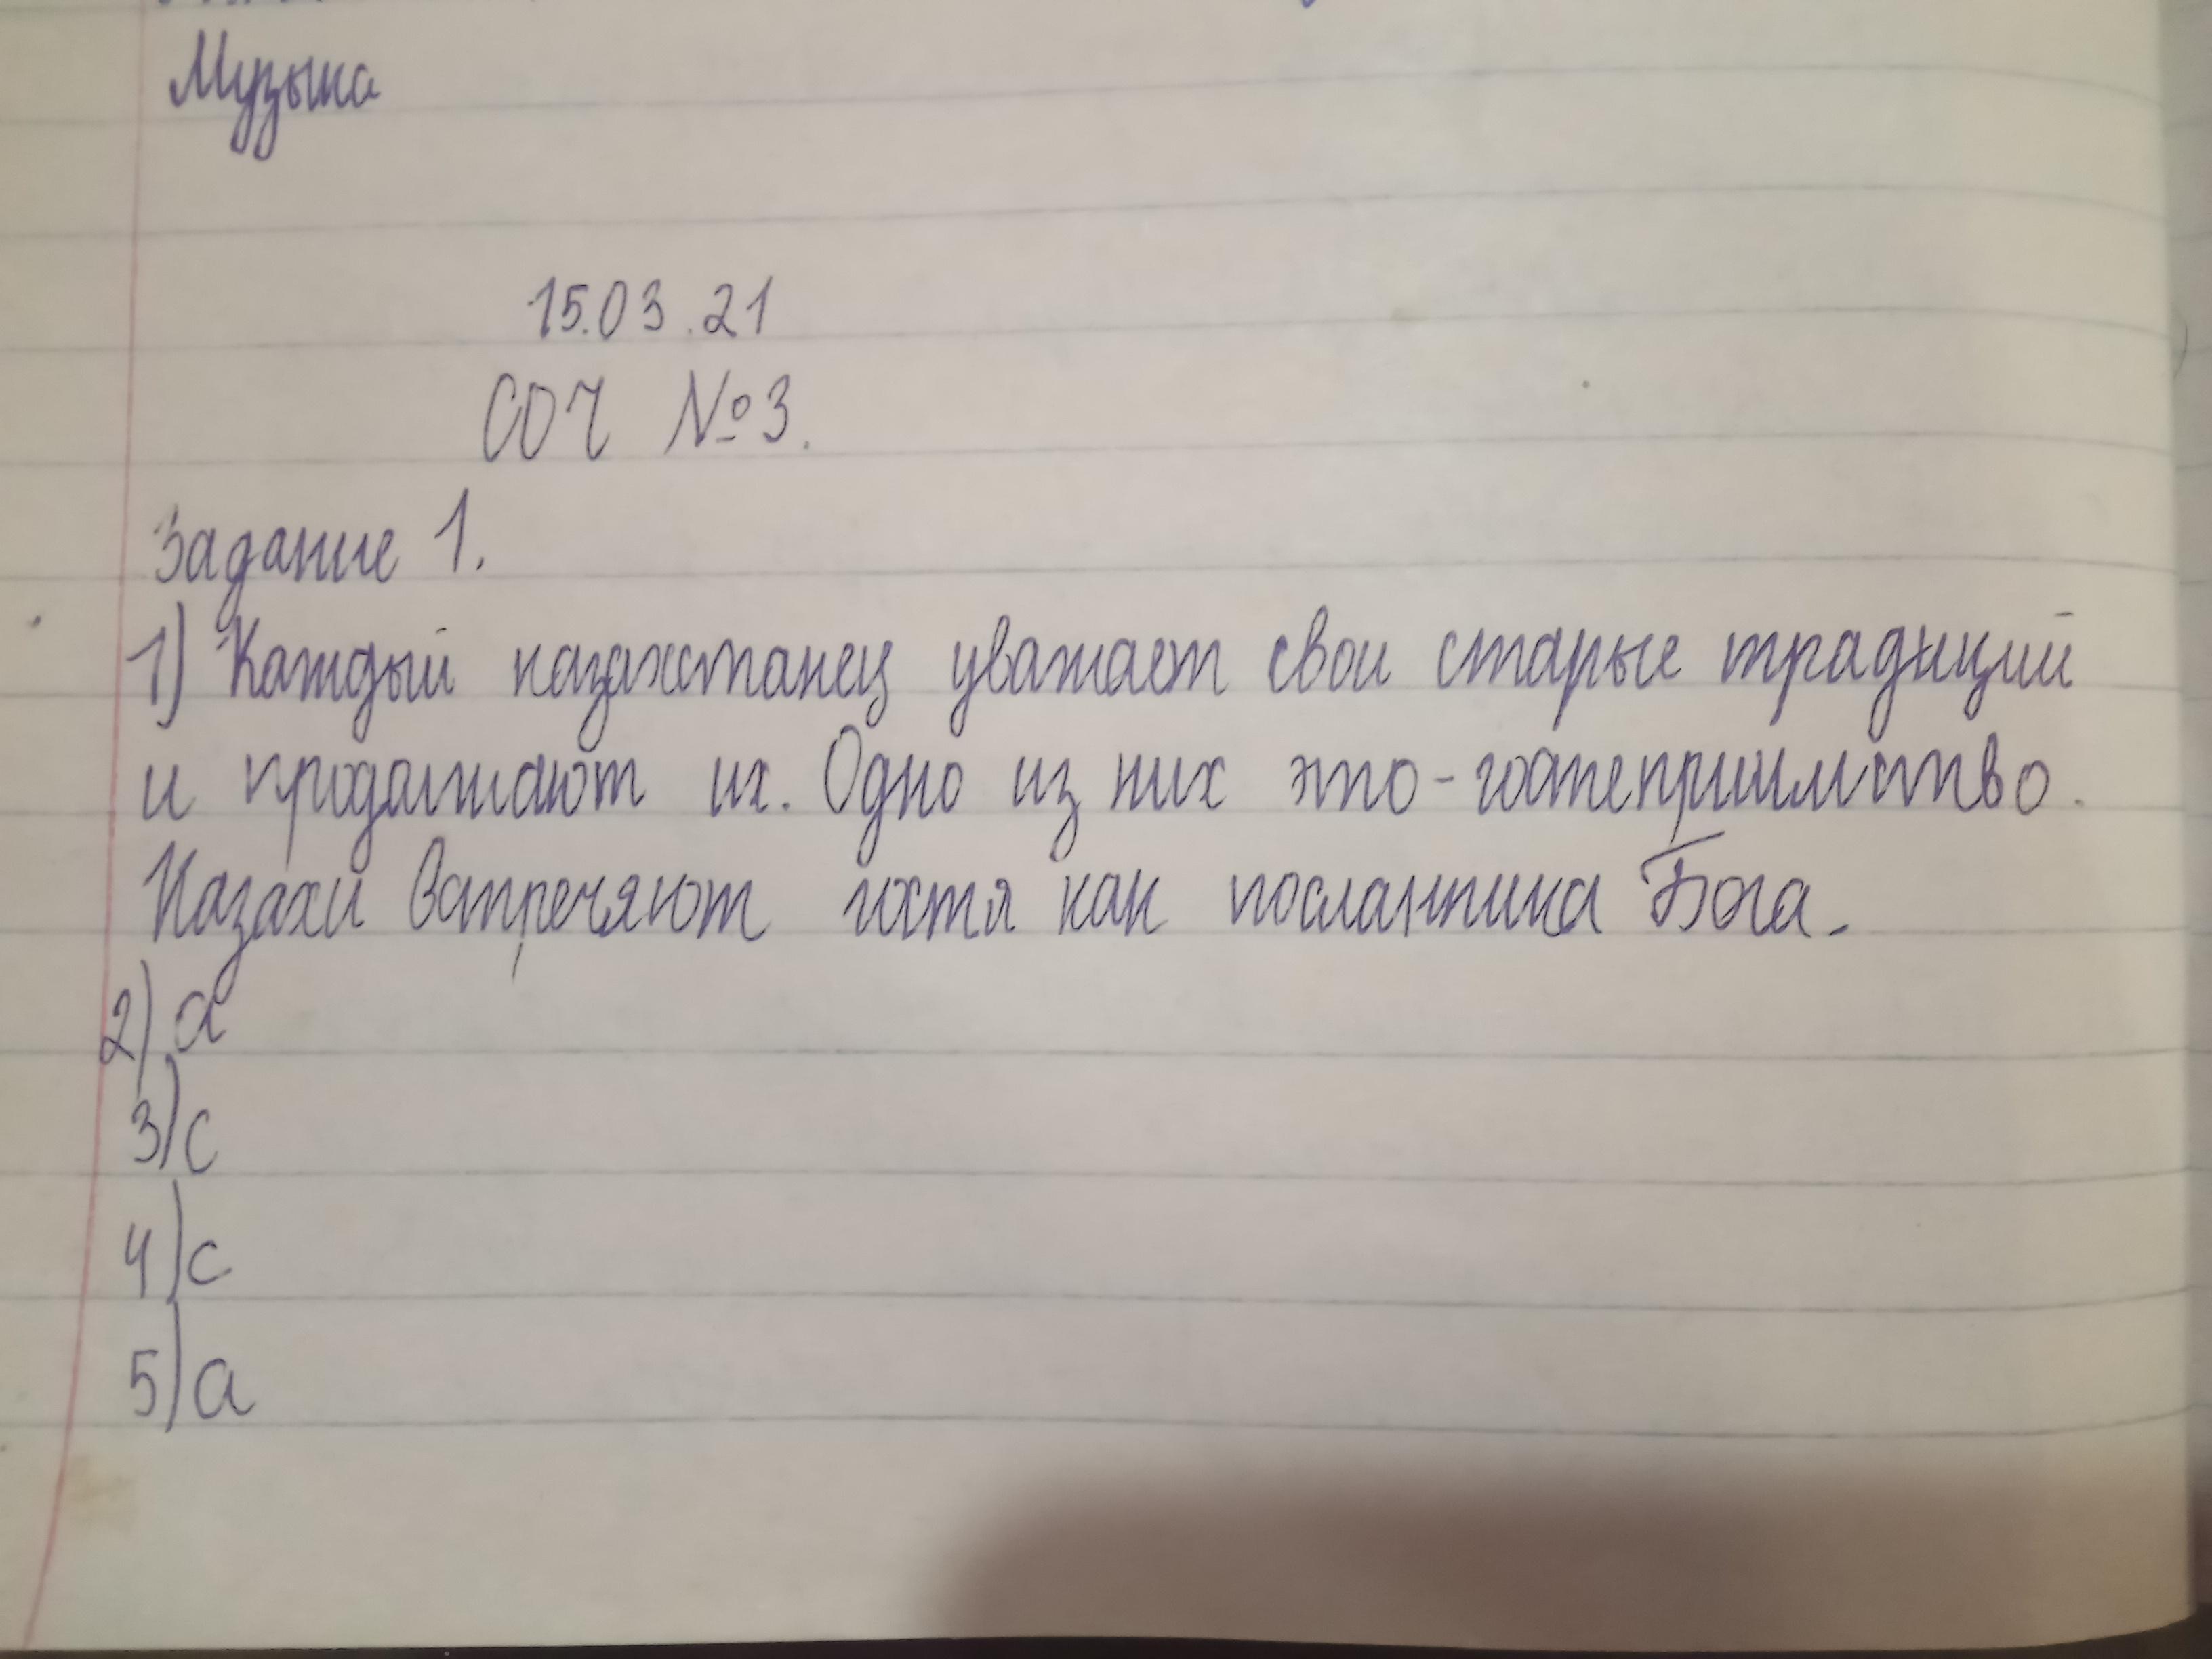 Музыка
15.03.21
СОЧ №3.
Задание 1.
1) Каждый казахстанец уважает свои старые традиций
и продолжают их. Одно из них это - гостеприимство.
Казахи встречяют гостя как посланника Бога.
2) а
3) с
4) с
5) а